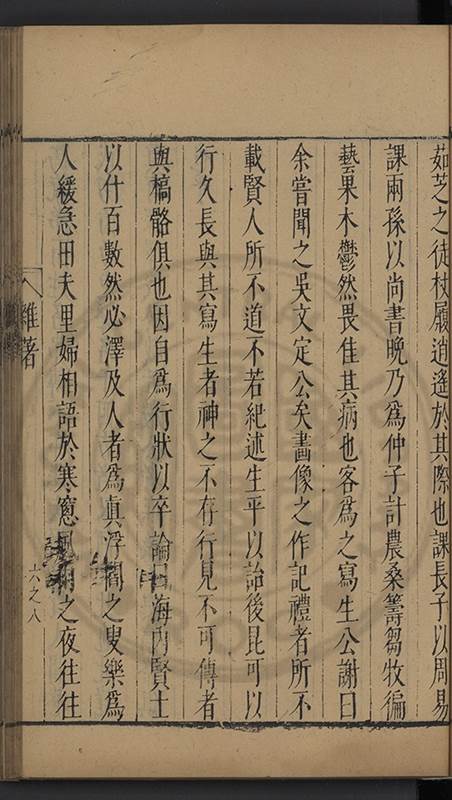 茹芝之徒杖履逍遙於其際也課長子以周易
課兩孫以尚書晚乃為仲子計農桑籌芻牧徧
藝果木鬱然畏佳其病也客為之寫生公謝曰
余嘗聞之吳文定公矣畵像之作記禮者所不
載賢人所不道不若紀述生平以詒後昆可以
行久長與其寫生者神之不存行見不可傳者
與槁骼俱也因自為行狀以卒論曰海內賢士
以什百數然必澤及人者為眞浮閣之叟樂為
人緩急田夫里婦相語於寒窻之夜往往
雜著
六之八